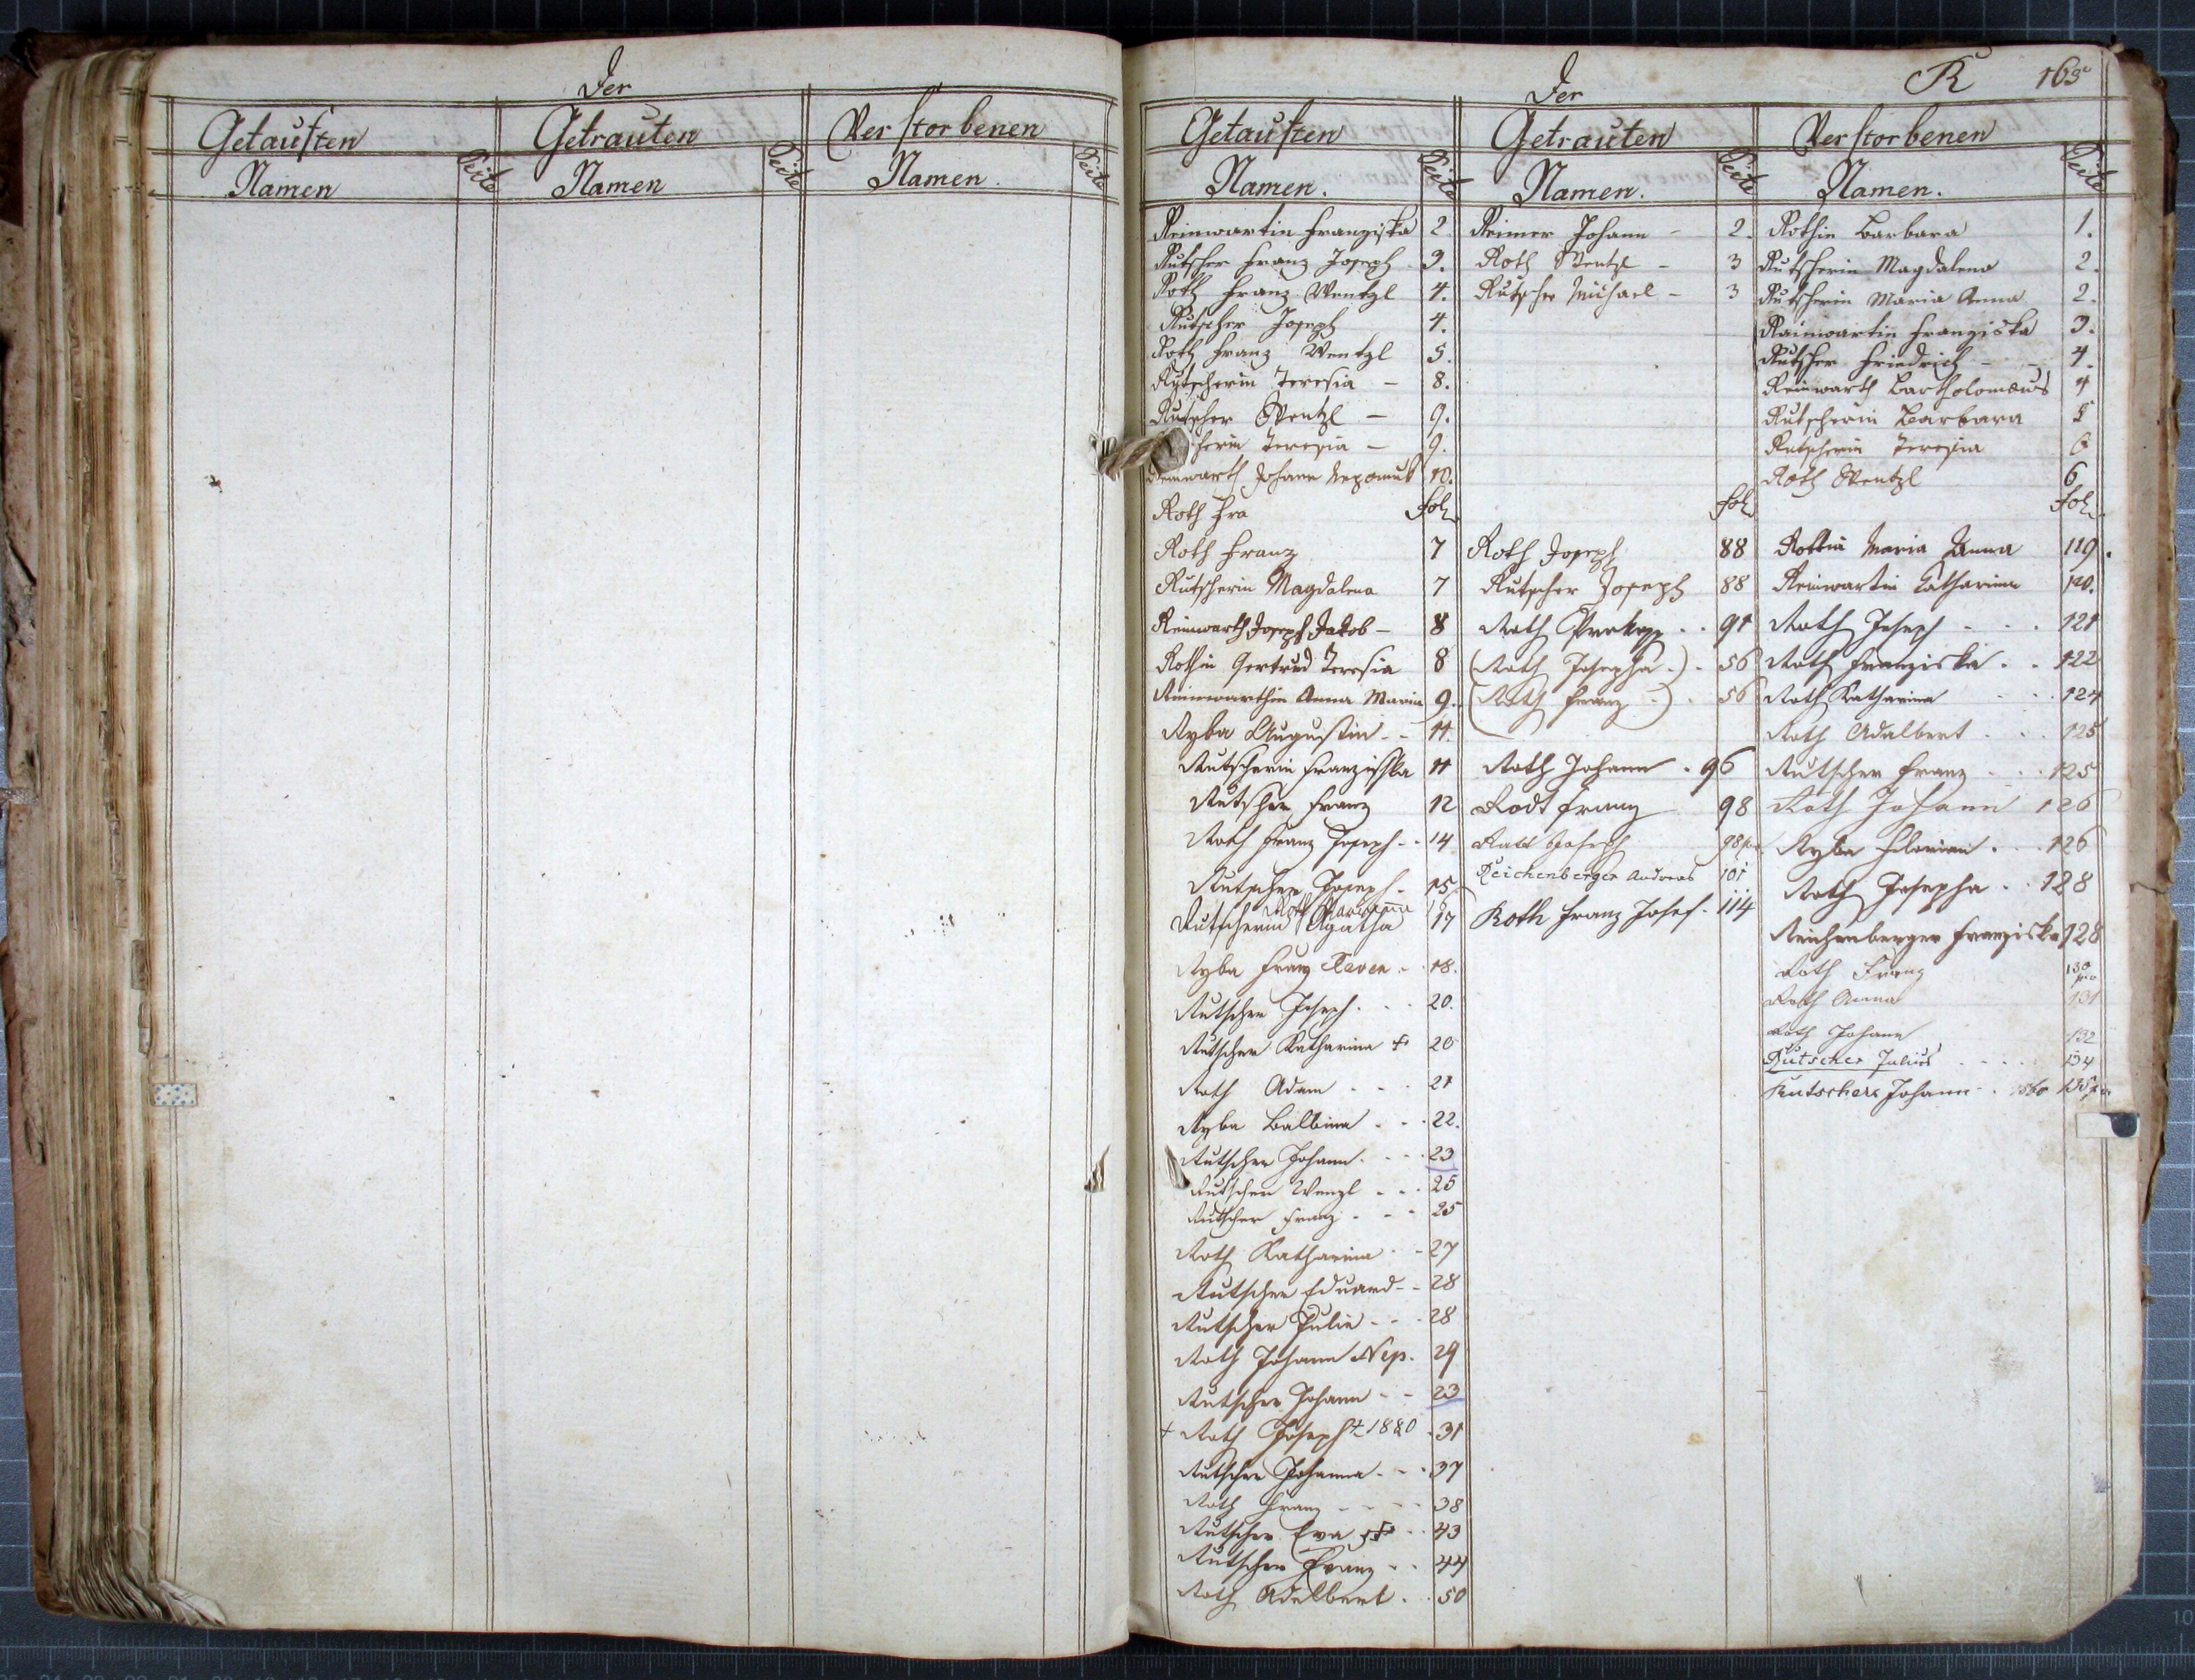 Der
Getauften Getrauten Verstorbenen
Namen Seite Namen Seite Namen. Seite
Der R 163
Getauften Getrauten Verstorbenen
Namen. Seite Namen. Seite Namen. Seite
Reinwartin Franziska 2
Rutscher Franz Joseph 3.
Roth Franz Wentzl 4.
Rutscher Joseph 4.
Roth Franz Wentzl 5.
Rutscherin Teresia - 8.
Rutscher Wentzl - 9.
scherin Teresia - 9.
Reinwarth Johann Nepomuk 10.
Roth Fra Fol.
Roth Franz 7
Rutscherin Magdalena 7
Reinwarth Joseph Jakob - 8
Rothin Gertrud Teresia 8
Reinwarthin Anna Maria 9.
Ryba Augustin - - 11.
Rutscherin Franzischka 11
Rutscher Franz 12
Roth Franz Joseph - - 14
Rutscher Joseph - 15
Roth Marianna
Rutscherin Agatha 17
Ryba Franz Xaver - 18.
Rutscher Joseph . . . 20.
Rutscher Katharina + 20
Roth Adam . . . 21
Ryba Balbina . . . 22.
Rutscher Johann . . . 23
Rutscher Wenzl . . . 25
Rutscher Franz . . . 25
Roth Katharina . - 27
Rutscher Eduard - - 28
Rutscher Julie - - . 28
Roth Johann Nep. 29
Rutscher Johann - - 23
+ Roth Joseph + 1880 . 31
Rutscher Johanna . - . 37
Roth Franz - - - - 38
Rutscher Eva + . . 43
Rutscher Franz . . 44
Roth Adalbert . . 50
Reimer Johann - 2.
Roth Wentzl - 3
Rutscher Michael - 3
Fol.
Roth Joseph 88
Rutscher Joseph 88
Roth Prokopp . . 91
(Roth Josepha .) . 56
(Roth Franz .) . 56
Roth Johann . 96
Rodt Franz 98
Roth Joseph 98
Reichenberger Andreas 101
Roth Franz Josef . 114
Rothin Barbara 1.
Rutscherin Magdalena 2.
Rutscherin Maria Anna 2.
Rainwartin Franziska 3.
Rutscher Friedrich - - 4.
Reinwarth Bartholomæus 4
Rutscherin Barbara 5
Rutscherin Teresia 6
Roth Wentzl 6
Fol.
Rothin Maria Anna 119.
Reinwartin Catharina 120.
Roth Joseph - - . 121
Roth Franziska . . 122
Roth Katharina . . 124
Roth Adalbert . . . 125
Rutscher Franz . . . 125
Roth Johann 126
Ryba Florian . . . 126
Roth Josepha . . 128
Reichenberger Franziska 128
Roth Franz 130
Roth Anna 131
Roth Johann 132
Rutscher Julius . . . . 134
Rutscher Johann . 1860 135